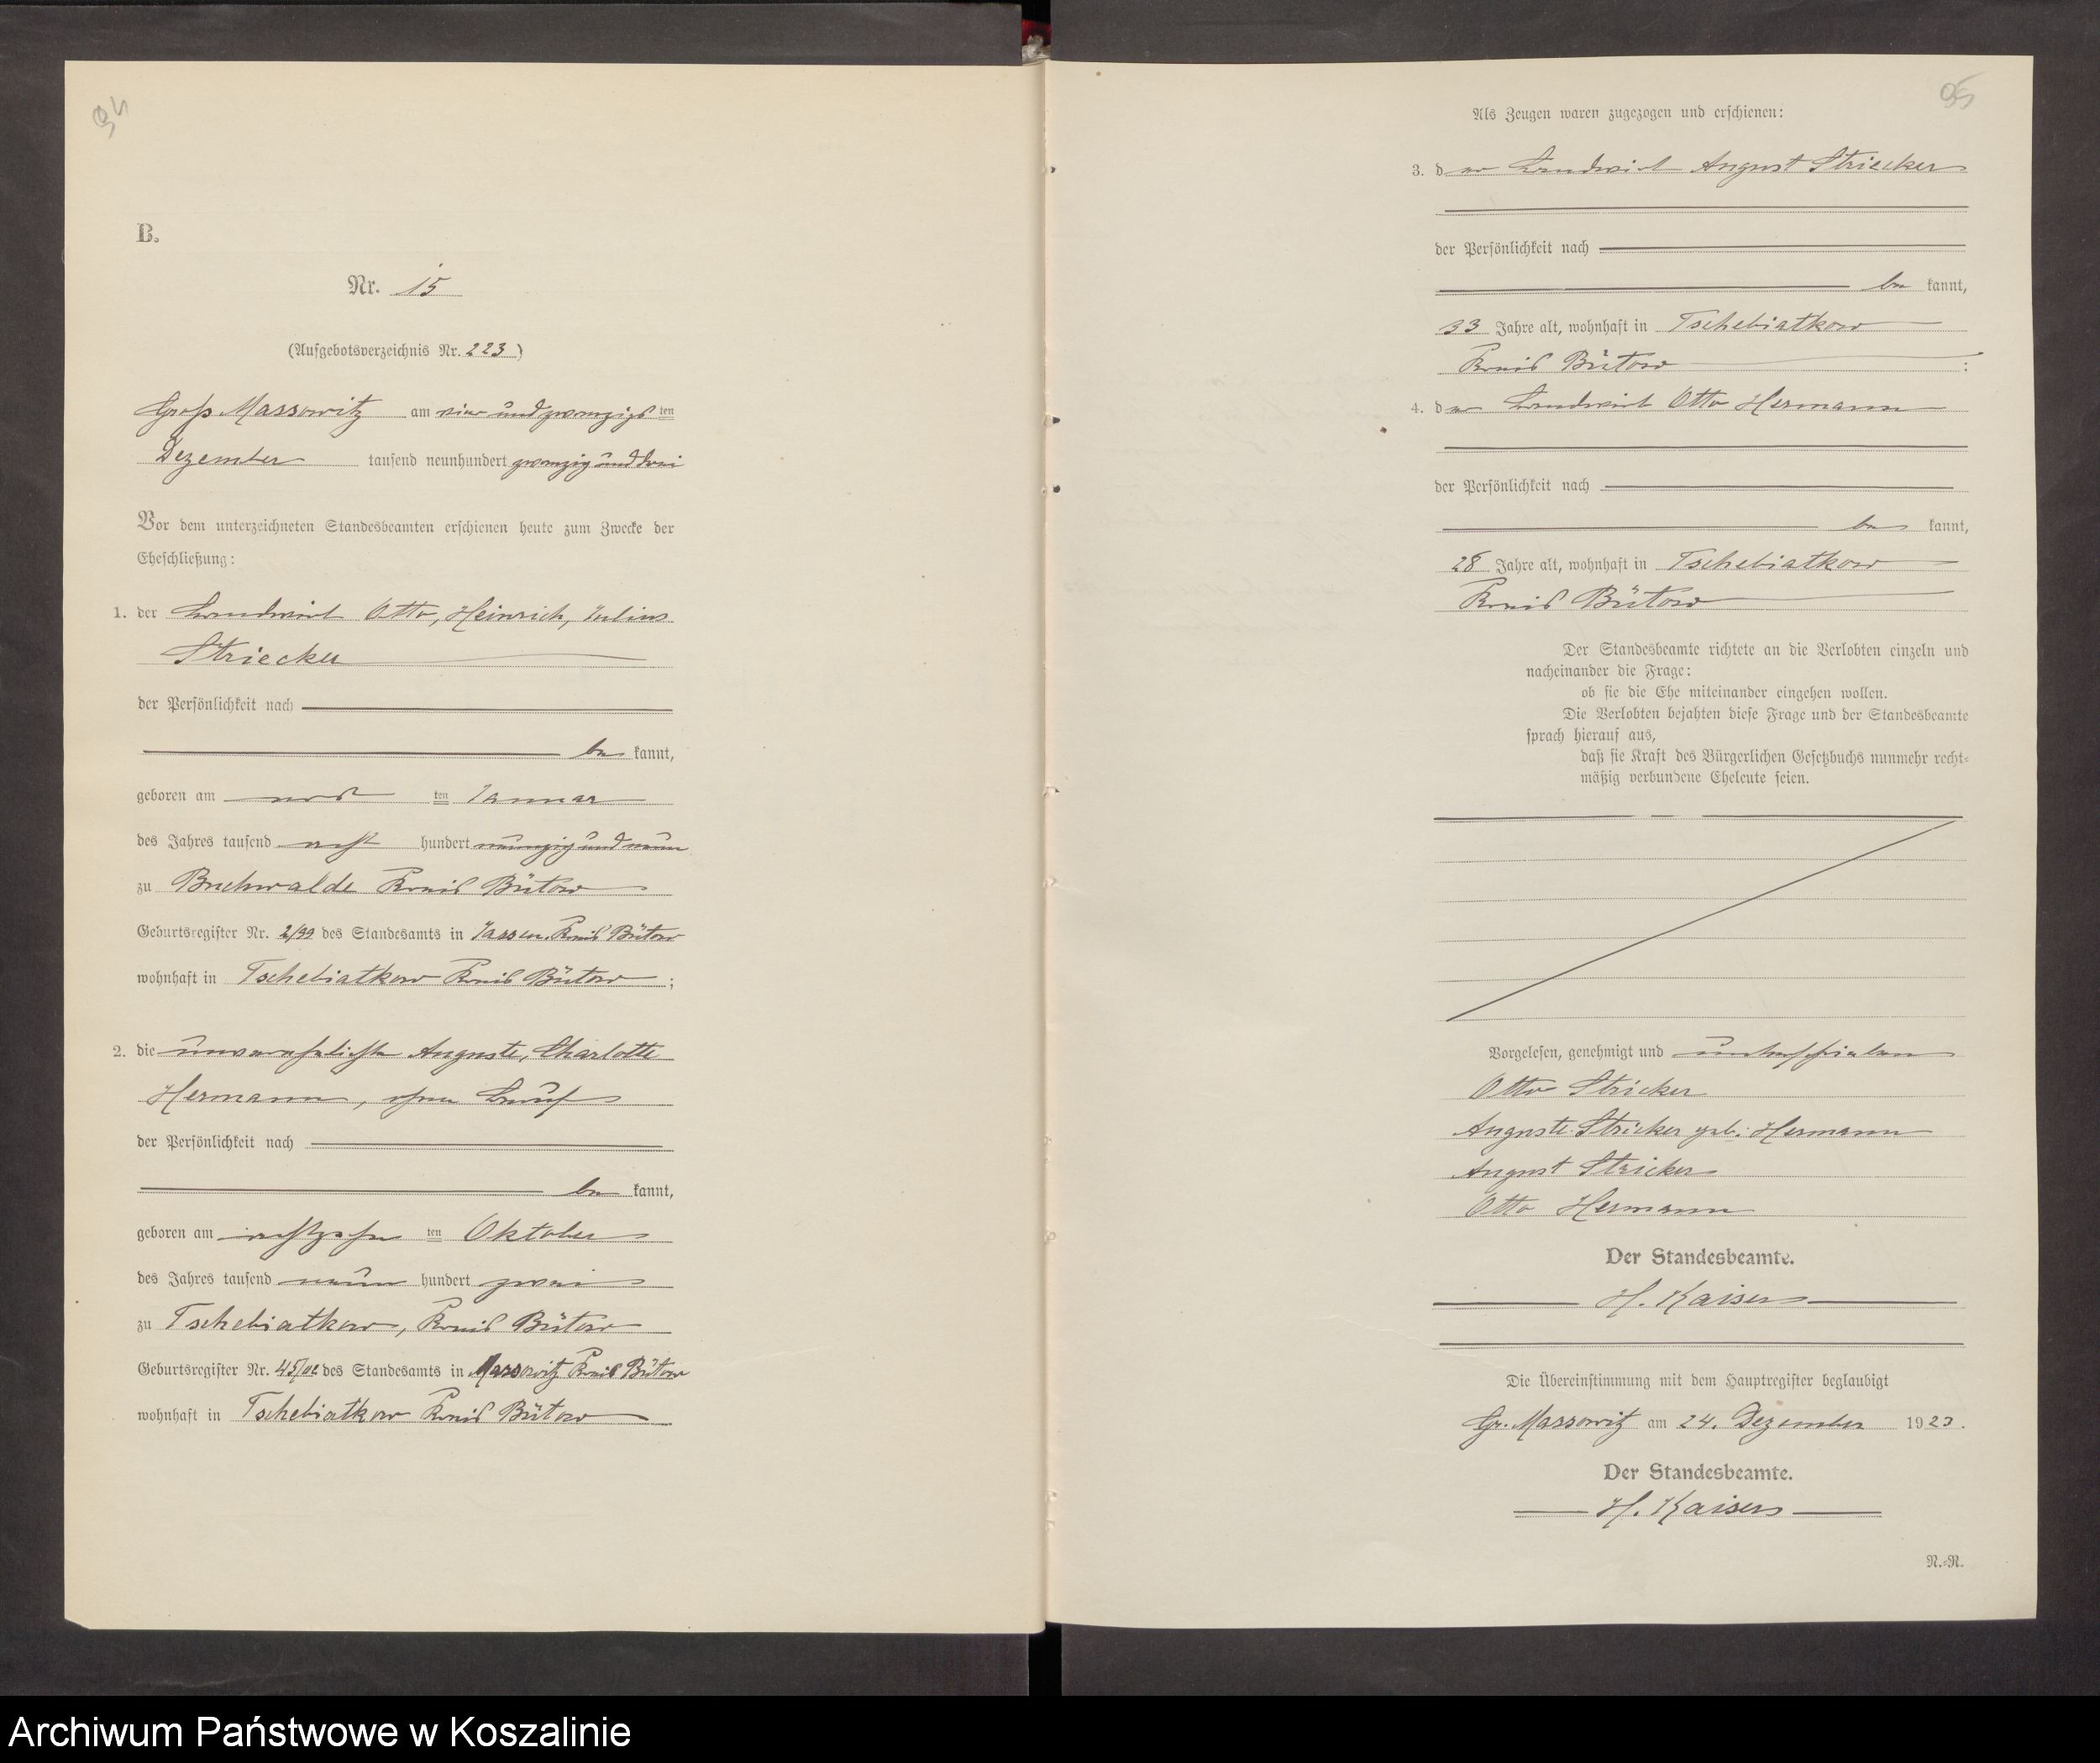 94
B.
Nr. 15
(Aufgebotsverzeichnis Nr. 223)
Groß Massowitz am vier und zwanzigsten
Dezember tausend neunhundert zwanzig und drei
Vor dem unterzeichneten Standesbeamten erschienen heute zum Zwecke der
Eheschließung:
1. der Landwirt Otto, Heinrich, Julius
Striecker
der Persönlichkeit nach
be kannt,
geboren am ersten Januar
des Jahres tausend acht hundert neunzig und neun
zu Buchwalde Kreis Bütow
Geburtsregister Nr. 2/99 des Standesamts in Jassen, Kreis Bütow
wohnhaft in Tschebiatkow Kreis Bütow ;
2. die unverehelichte Auguste, Charlotte
Hermann, ohne Beruf
der Persönlichkeit nach
be kannt,
geboren am achtzehn ten Oktober
des Jahres tausend neun hundert zwei
zu Tschebiatkow, Kreis Bütow
Geburtsregister Nr. 45/02 des Standesamts in Massowitz Kreis Bütow
wohnhaft in Tschebiatkow Kreis Bütow
95
Als Zeugen waren zugezogen und erschienen:
3. der Landwirt August Striecker
der Persönlichkeit nach
be kannt,
33 Jahre alt, wohnhaft in Tschebiatkow
Kreis Bütow ;
4. der Landwirt Otto Hermann
der Persönlichkeit nach
be kannt,
28 Jahre alt, wohnhaft in Tschebiatkow
Kreis Bütow
Der Standesbeamte richtete an die Verlobten einzeln und
nacheinander die Frage:
ob sie die Ehe miteinander eingehen wollen.
Die Verlobten bejahten diese Frage und der Standesbeamte
sprach hierauf aus,
daß sie Kraft des Bürgerlichen Gesetzbuchs nunmehr recht-
mäßig verbundene Eheleute seien.
Vorgelesen, genehmigt und unterschrieben
Otto Stricker
Auguste Stricker geb. Hermann
August Stricker
Otto Hermann
Der Standesbeamte.
H. Kaiser
Die Übereinstimmung mit dem Hauptregister beglaubigt
Gr. Massowitz am 24. Dezember 1923.
Der Standesbeamte.
H. Kaiser
N.-R.
Archiwum Państwowe w Koszalinie